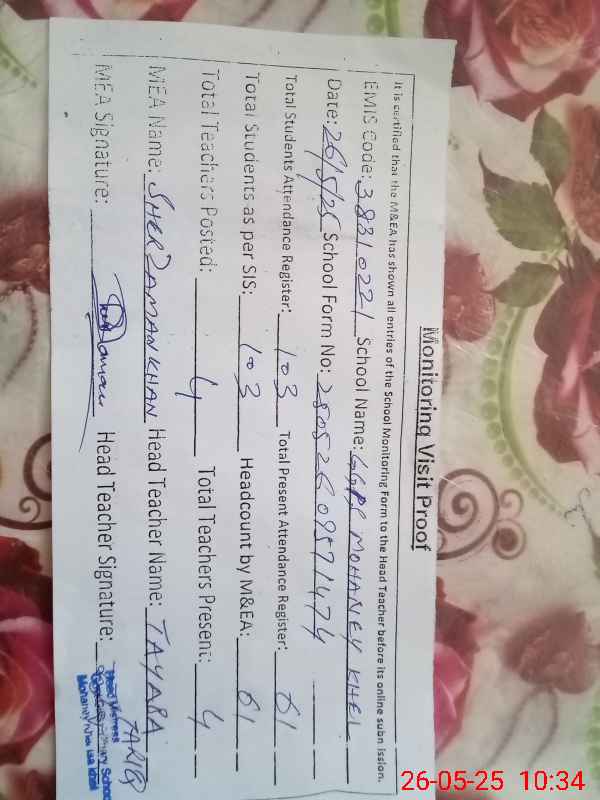 Monitoring Visit Proof
It is certified that the M&EA has shown all entries of the School Monitoring Form to the Head Teacher before its online submission.
EMIS Code: 38310221 School Name: GGPS MOHANEY KHEL
Date: 26/5/25 School Form No: 25052609571474
Total Students Attendance Register: 103 Total Present Attendance Register: 61
Total Students as per SIS: 103 Headcount by M&EA: 61
Total Teachers Posted: 4 Total Teachers Present: 4
MEA Name: SHER ZAMAN KHAN Head Teacher Name: TAYABA TARIQ
MEA Signature: Head Teacher Signature:
Head Mistress
26-05-25 10:34